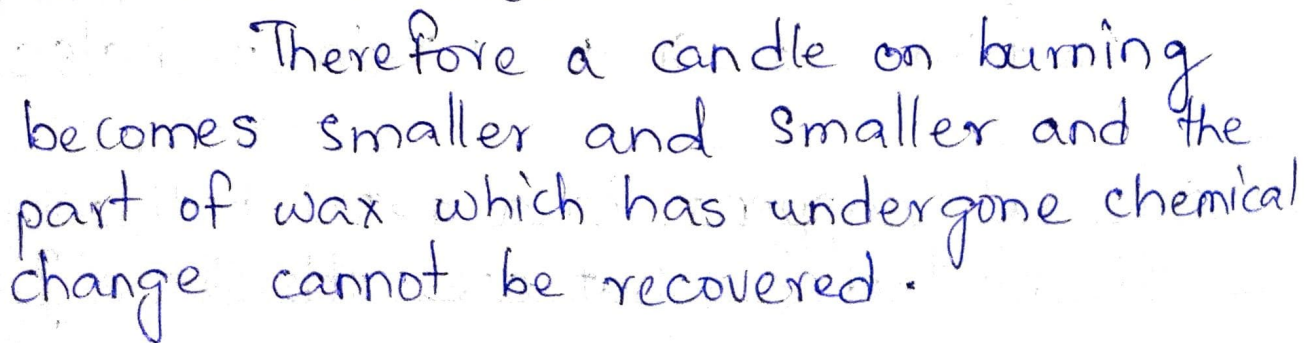 Therefore a candle on burning
becomes smaller and smaller and the
part of wax which has undergone chemical
change cannot be recovered.